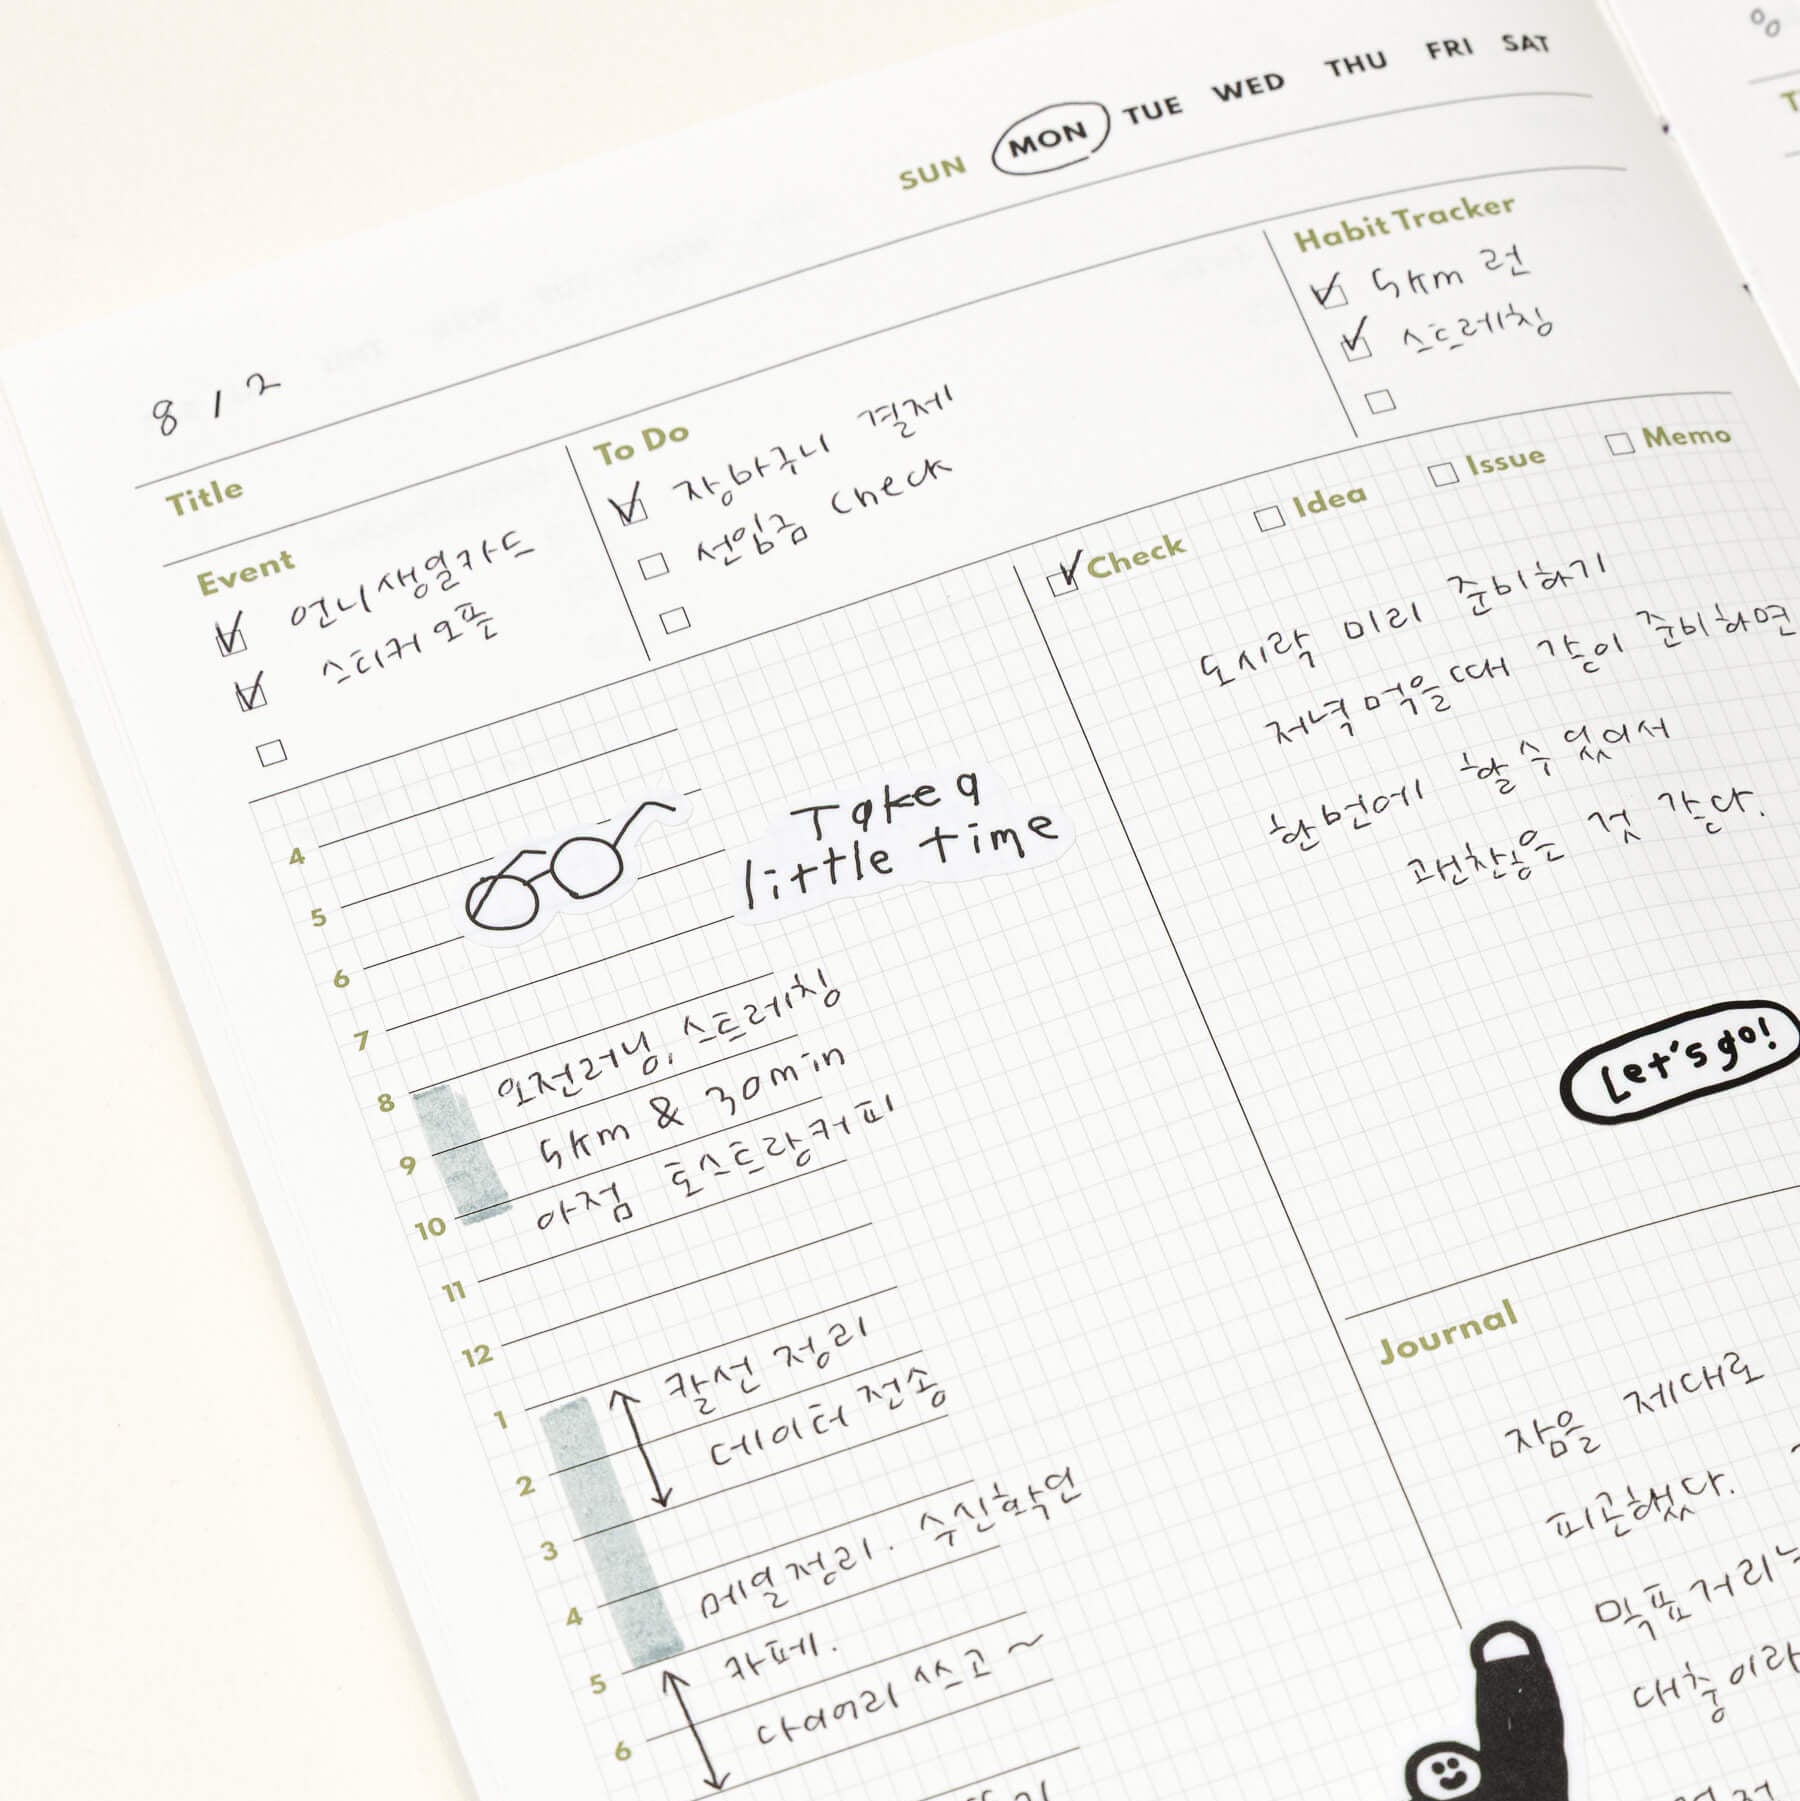 SUN MON TUE WED THU FRI SAT
8 / 2
Title
Event
언니생일카드
스티커 오픈
To Do
장바구니 결제
선입금 check
Habit Tracker
5km 런
스트레칭
Check Idea Issue Memo
도시락 미리 준비하기
저녁 먹을때 같이 준비하면
한번에 할 수 있어서
괜찮은 것 같다.
Let's go!
4
Take a
little time
5
6
7
오전러닝, 스트레칭
8
5km & 30min
9
아점 토스트랑커피
10
11
12
칼선 정리
1
데이터 전송
2
3
메일정리. 수신확인
4
카페.
5
다이어리 쓰고 ~
6
Journal
잠을 제대로
피곤했다.
목표거리
대충이라